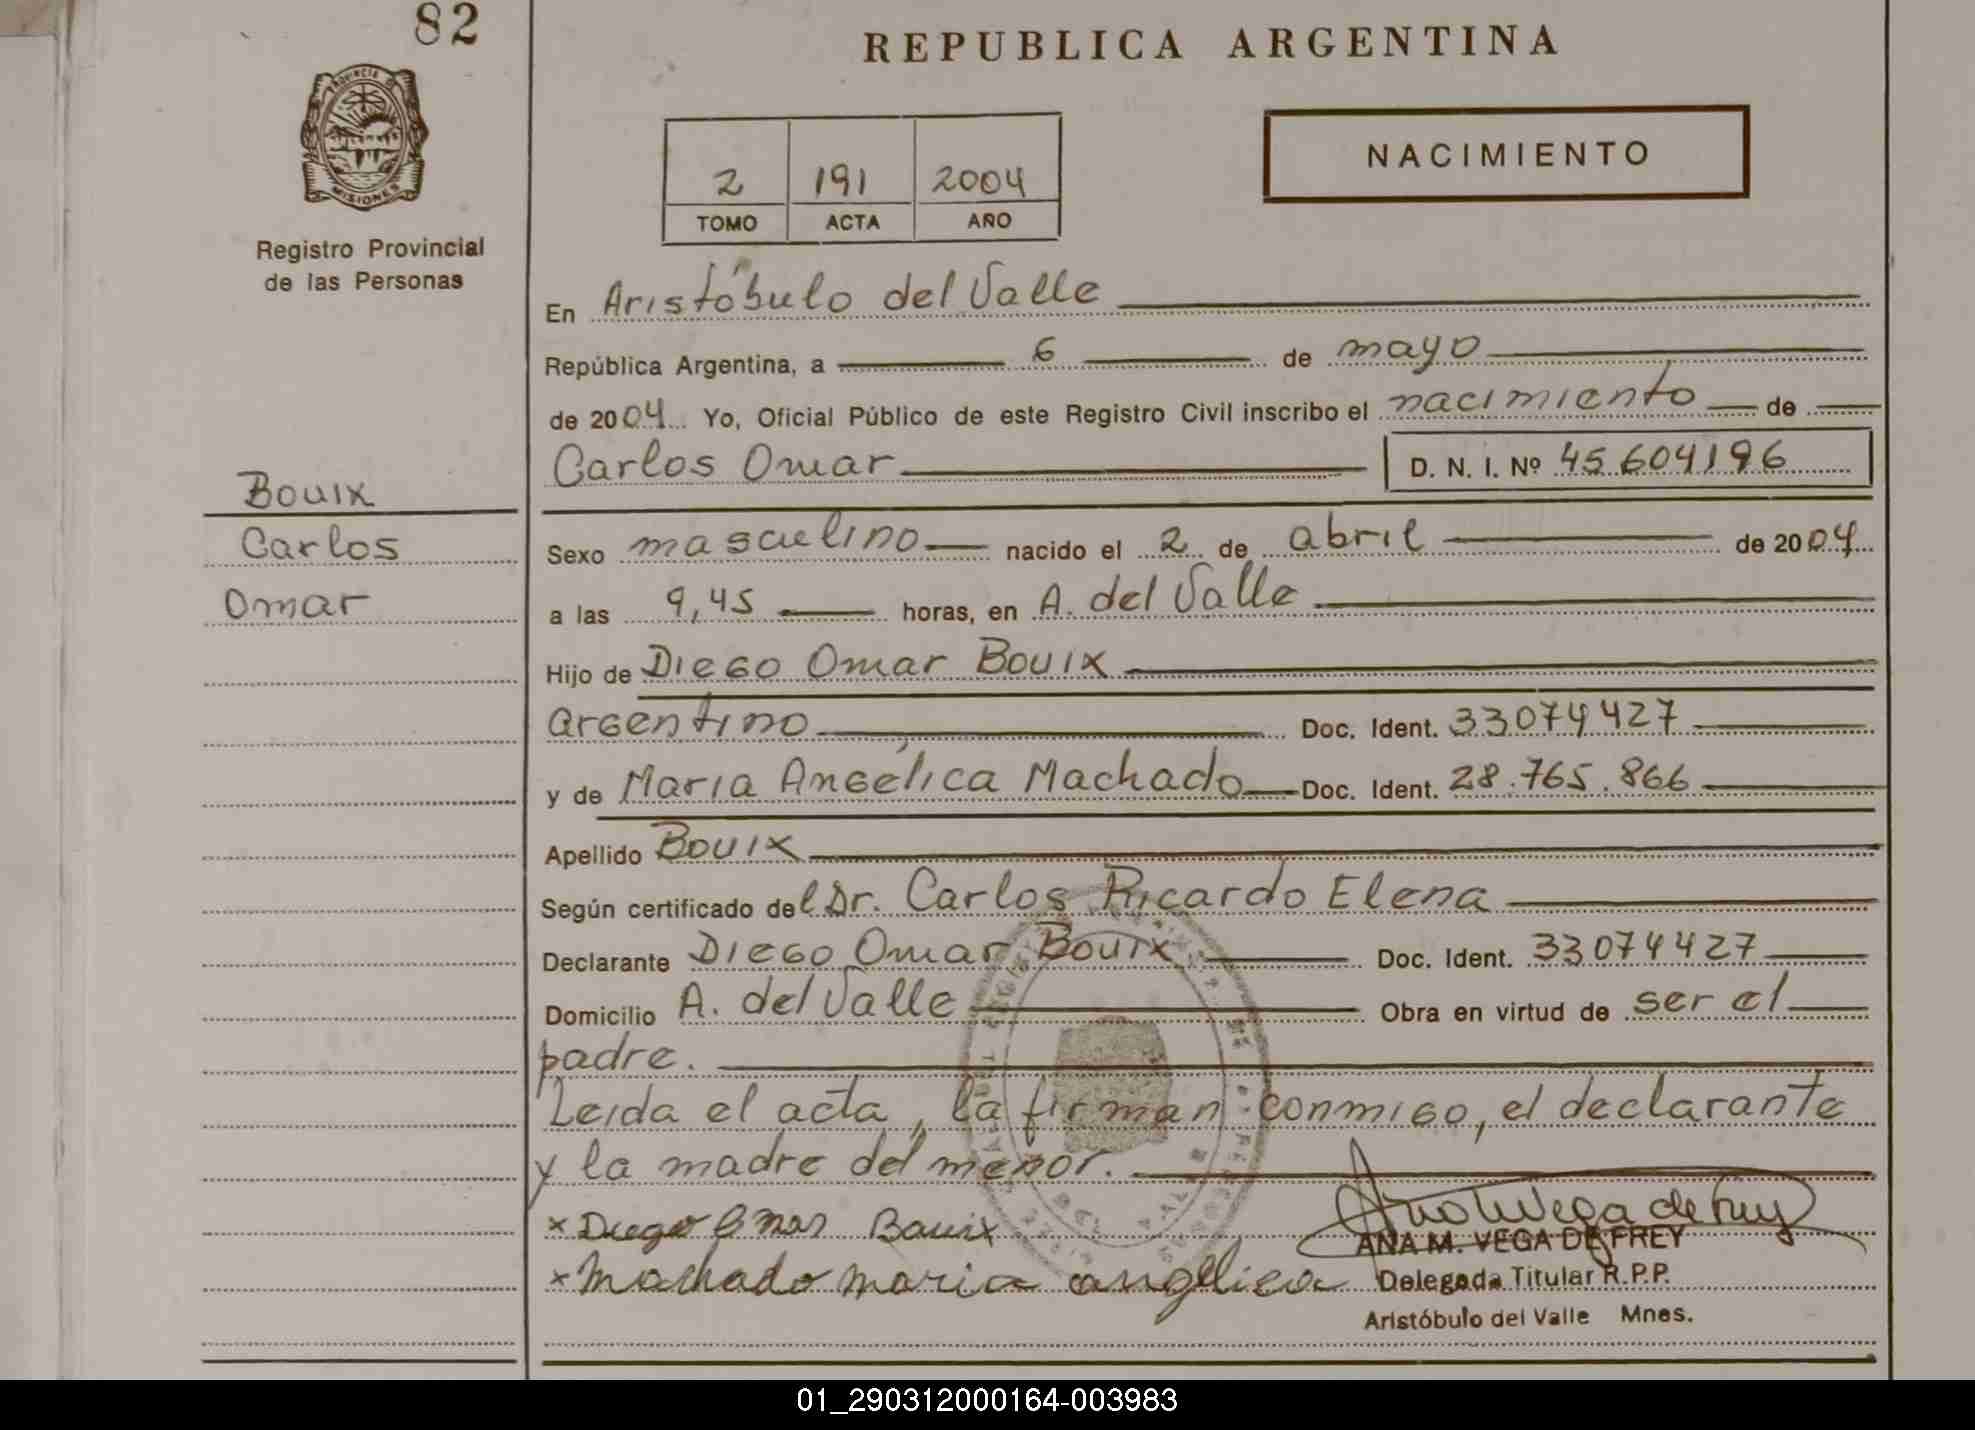 82
REPUBLICA ARGENTINA
PROVINCIA DE
MISIONES
Registro Provincial
de las Personas
NACIMIENTO
2 191 2004
TOMO ACTA AÑO
En Aristóbulo del Valle
República Argentina, a 6 de mayo
de 2004 Yo, Oficial Público de este Registro Civil inscribo el nacimiento de
Carlos Omar D. N. I. Nº 45604196
Bouix
Carlos
Omar
Sexo masculino nacido el 2 de abril de 2004
a las 9,45 horas, en A. del Valle
Hijo de Diego Omar Bouix
argentino Doc. Ident. 33074427
y de María Angélica Machado Doc. Ident. 28.765.866
Apellido Bouix
Según certificado del Dr. Carlos Ricardo Elena
Declarante Diego Omar Bouix Doc. Ident. 33074427
Domicilio A. del Valle Obra en virtud de ser el
padre.
Leida el acta, la firman conmigo, el declarante
y la madre del menor.
x Diego Omar Bouix
x Machado maria angelica
Ana M Vega de Frey
ANA M. VEGA DE FREY
Delegada Titular R.P.P.
Aristóbulo del Valle Mnes.
01_290312000164-003983